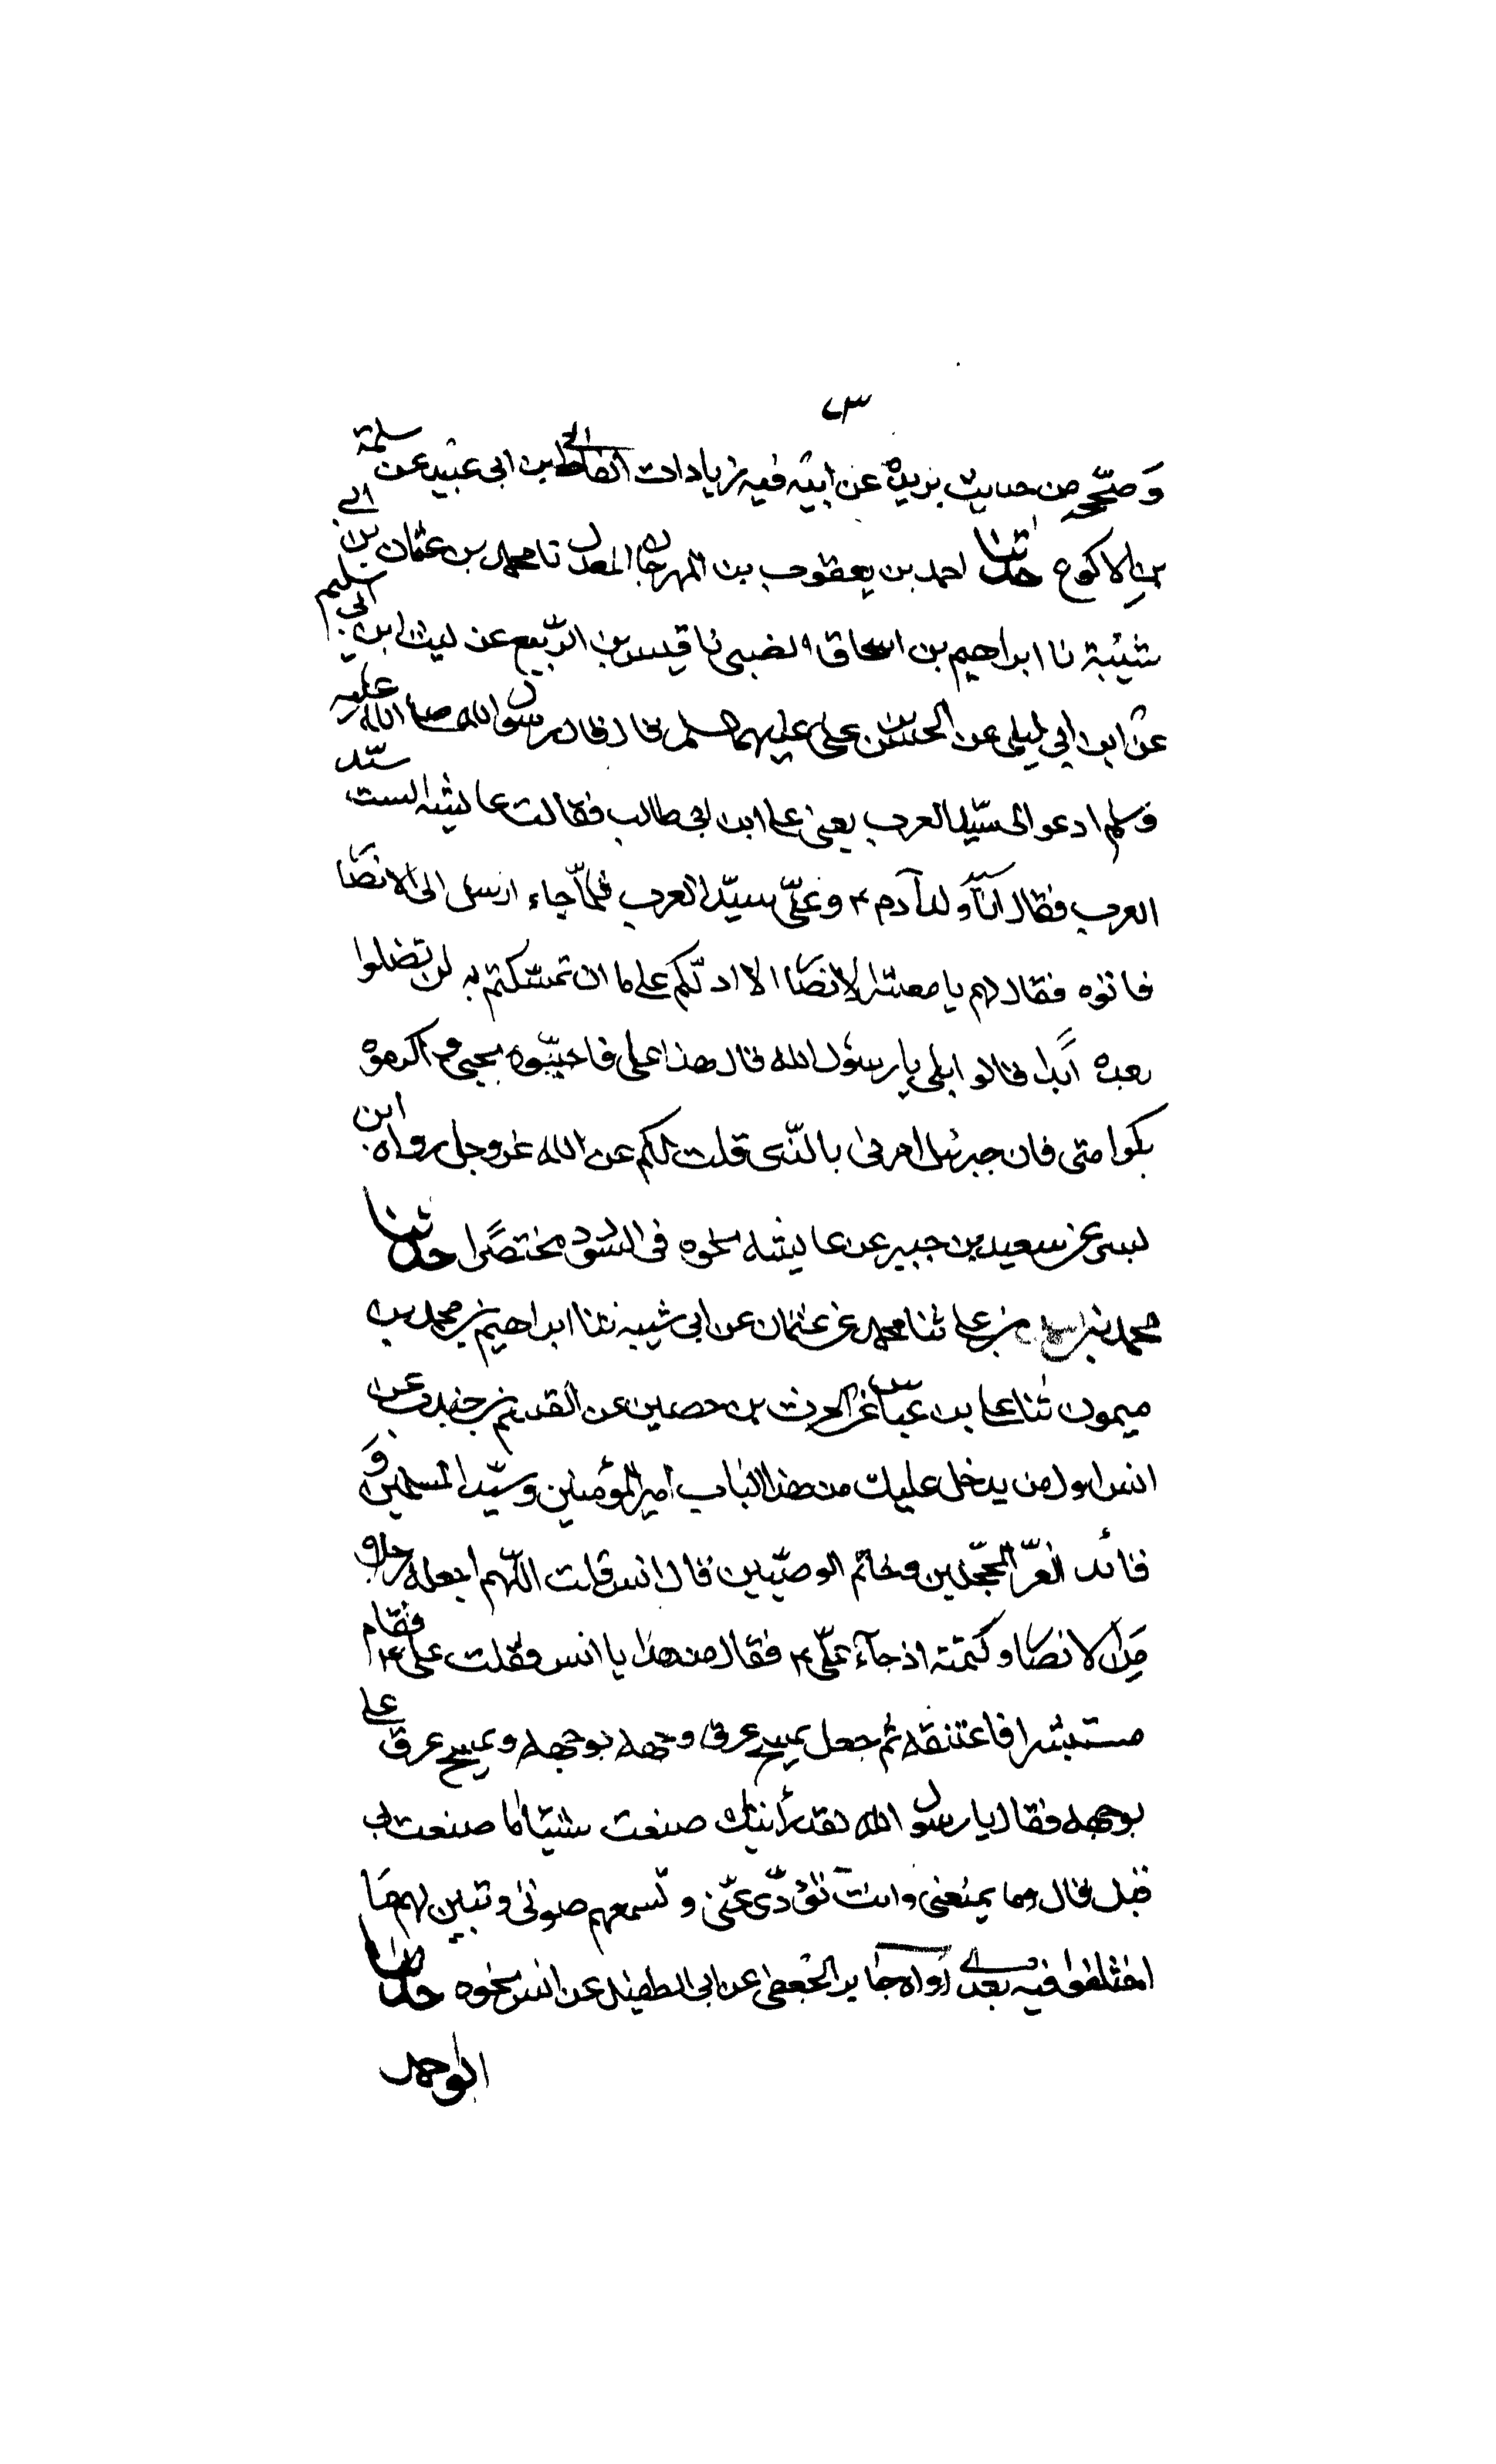 ٣
وصحيح من حديث بريدة عن ابيه فيه زيادات الفاظ ابن ابى عبيد عن سلمة
بن الاكوع حدثنا احمد بن يعقوب بن المهرجان المعدل نا محمد بن عثمان بن ابي
شيبة نا ابراهيم بن اسحاق الضبى نا قيس بن الربيع عن ليث ابن ابي سليم
عن ابن ابي ليلى عن الحسن بن على عليهما السلم قال قال رسول الله صلى الله عليه
وسلم ادعوا لى سيد العرب يعنى على ابن ابى طالب فقالت عايشه الست سيد
العرب فقال انا سيد ولد آدم ٤ وعلىّ سيّد العرب فلمّا جاء ارسل الى الانصار
فاتوه فقال لهم يا معشر الانصار الا ادلّكم على ما ان تمسّكتم به لن تضلوا
بعده ابدًا قالوا بلى يا رسول الله قال هذا على فاحبّوه بحبى و اكرموه
بكرامتى فان جبرئيل امرنى بالذى قلت لكم عن الله عز وجل رواه ابن
بسر عن سعيد بن جبير عن عايشه نحوه فى السودد مختصرًا حدثنا
محمد بن بن على ثنا محمد بن عثمان عن ابى شيبه ثنا ابراهيم بن محمد بن
ميمون ثنا على بن عباس عن الحرث بن حصين عن القسم بن جندب عن
انس اول من يدخل عليك من هذا الباب امير المؤمنين وسيّد المسلمين و
قائد الغرّ المحجّلين وخاتم الوصيّين قال انس قلت اللّهم اجعله رجلا
من الانصار وكتمته اذ جآء علىّ ٤ فقال من هذا يا انس فقلت على ٤ فقام
مستبشرا فاعتنقه ثم جعل يمسح عرق وجهه بوجهه ويمسح عرق على
بوجهه فقال يا رسول الله لقد رأيتك صنعت شيئا ما صنعت بى
قبل قال وما يمنعنى وانت تؤدّى عنّى وتسمعهم صوتى وتبين لهم ما
اختلفوا فيه بعدى رواه جابر الجعفى عن ابى الطفيل عن انس نحوه حدثنا
ابو احمد